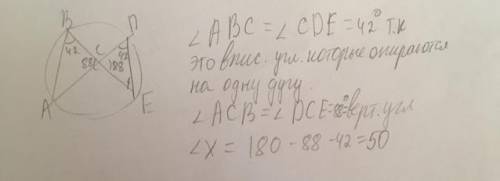 В
D
42
С
42
88
88
А
Е
∠ABC = ∠CDE = 42° т.к
это впис. угл. которые опираются
на одну дугу.
∠ACB = ∠DCE = 88° верт. угл
∠X = 180 - 88 - 42 = 50